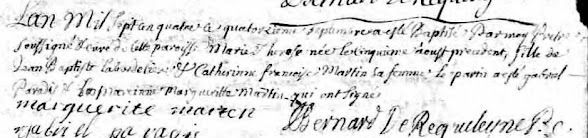 Lan Mil Sept cen quatre le quatorzieme Septembre a esté Baptisé Par moy Pretre
Soussigné Curé de cette paroisse Marie Therese née le cinquieme aoust precedent, fille de
Jean Baptiste labordeliere & Catherinne francoise Martin sa femme le parin a esté gabriel
Paradis & la marainne Marguerite Martin qui ont signé
marguerite marten
gabriel paradis Bernard De Requeleyne